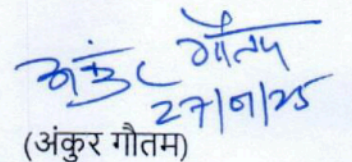 अंकुर गौतम
27/01/25
(अंकुर गौतम)